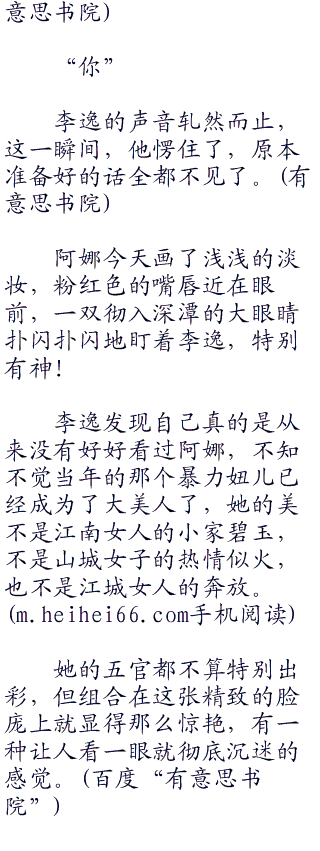 意思书院)
“你”
李逸的声音轧然而止，
这一瞬间，他愣住了，原本
准备好的话全都不见了。(有
意思书院)
阿娜今天画了浅浅的淡
妆，粉红色的嘴唇近在眼
前，一双彻入深潭的大眼睛
扑闪扑闪地盯着李逸，特别
有神!
李逸发现自己真的是从
来没有好好看过阿娜，不知
不觉当年的那个暴力妞儿已
经成为了大美人了，她的美
不是江南女人的小家碧玉，
不是山城女子的热情似火，
也不是江城女人的奔放。
(m.heihei66.com手机阅读)
她的五官都不算特别出
彩，但组合在这张精致的脸
庞上就显得那么惊艳，有一
种让人看一眼就彻底沉迷的
感觉。(百度“有意思书
院”)